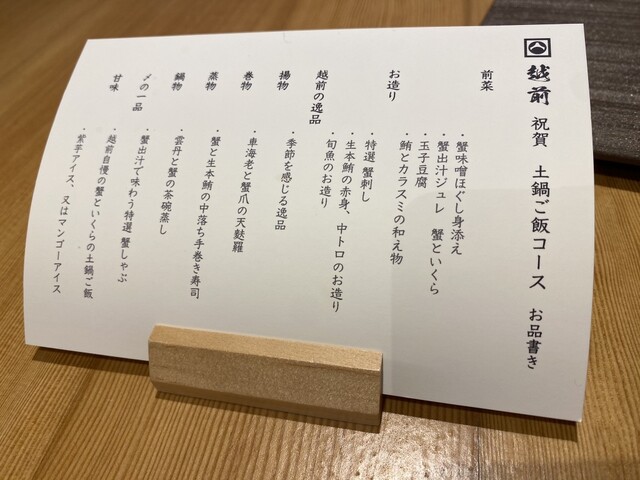 越前 祝賀 土鍋ご飯コース お品書き
前菜
・蟹味噌ほぐし身添え
・蟹出汁ジュレ 蟹といくら
・玉子豆腐
・鮪とカラスミの和え物
お造り
・特選 蟹刺し
・生本鮪の赤身、中トロのお造り
・旬魚のお造り
越前の逸品
・季節を感じる逸品
揚物
・車海老と蟹爪の天麩羅
巻物
・蟹と生本鮪の中落ち手巻き寿司
蒸物
・雲丹と蟹の茶碗蒸し
鍋物
・蟹出汁で味わう特選 蟹しゃぶ
〆の一品
・越前自慢の蟹といくらの土鍋ご飯
甘味
・紫芋アイス、又はマンゴーアイス